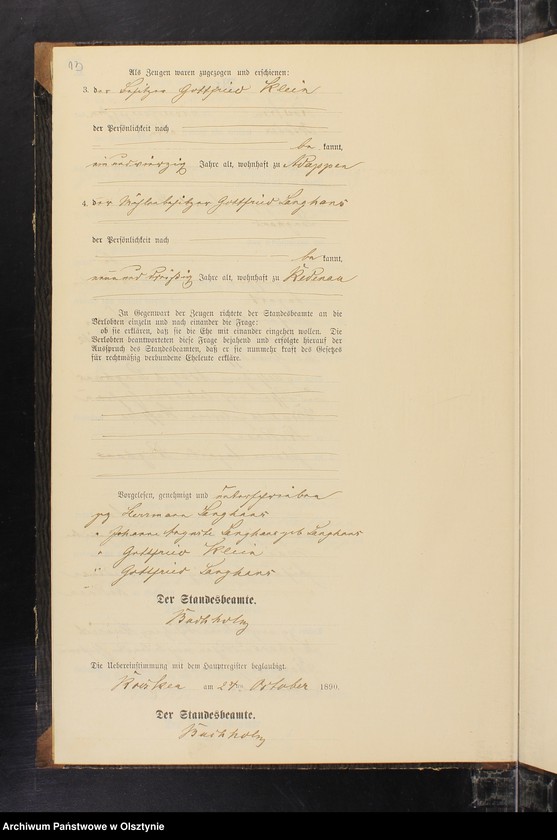 Als Zeugen waren zugezogen und erschienen:
3. der Besitzer Gottfried Klein
der Persönlichkeit nach
be kannt,
ein und vierzig Jahre alt, wohnhaft zu Adappen
4. der Mühlenbesitzer Gottfried Langhans
der Persönlichkeit nach
be kannt,
neun und dreißig Jahre alt, wohnhaft zu Redenau
In Gegenwart der Zeugen richtete der Standesbeamte an die
Verlobten einzeln und nach einander die Frage:
ob sie erklären, daß sie die Ehe mit einander eingehen wollen. Die
Verlobten beantworteten diese Frage bejahend und erfolgte hierauf der
Ausspruch des Standesbeamten, daß er sie nunmehr kraft des Gesetzes
für rechtmäßig verbundene Eheleute erkläre.
Vorgelesen, genehmigt und unterschrieben
gez Herrmann Langhans
" Johanne Auguste Langhans geb Langhans
" Gottfried Klein
" Gottfried Langhans
Der Standesbeamte.
Buchholz
Die Uebereinstimmung mit dem Hauptregister beglaubigt.
am 24ten October 1890.
Der Standesbeamte.
Buchholz
Archiwum Państwowe w Olsztynie